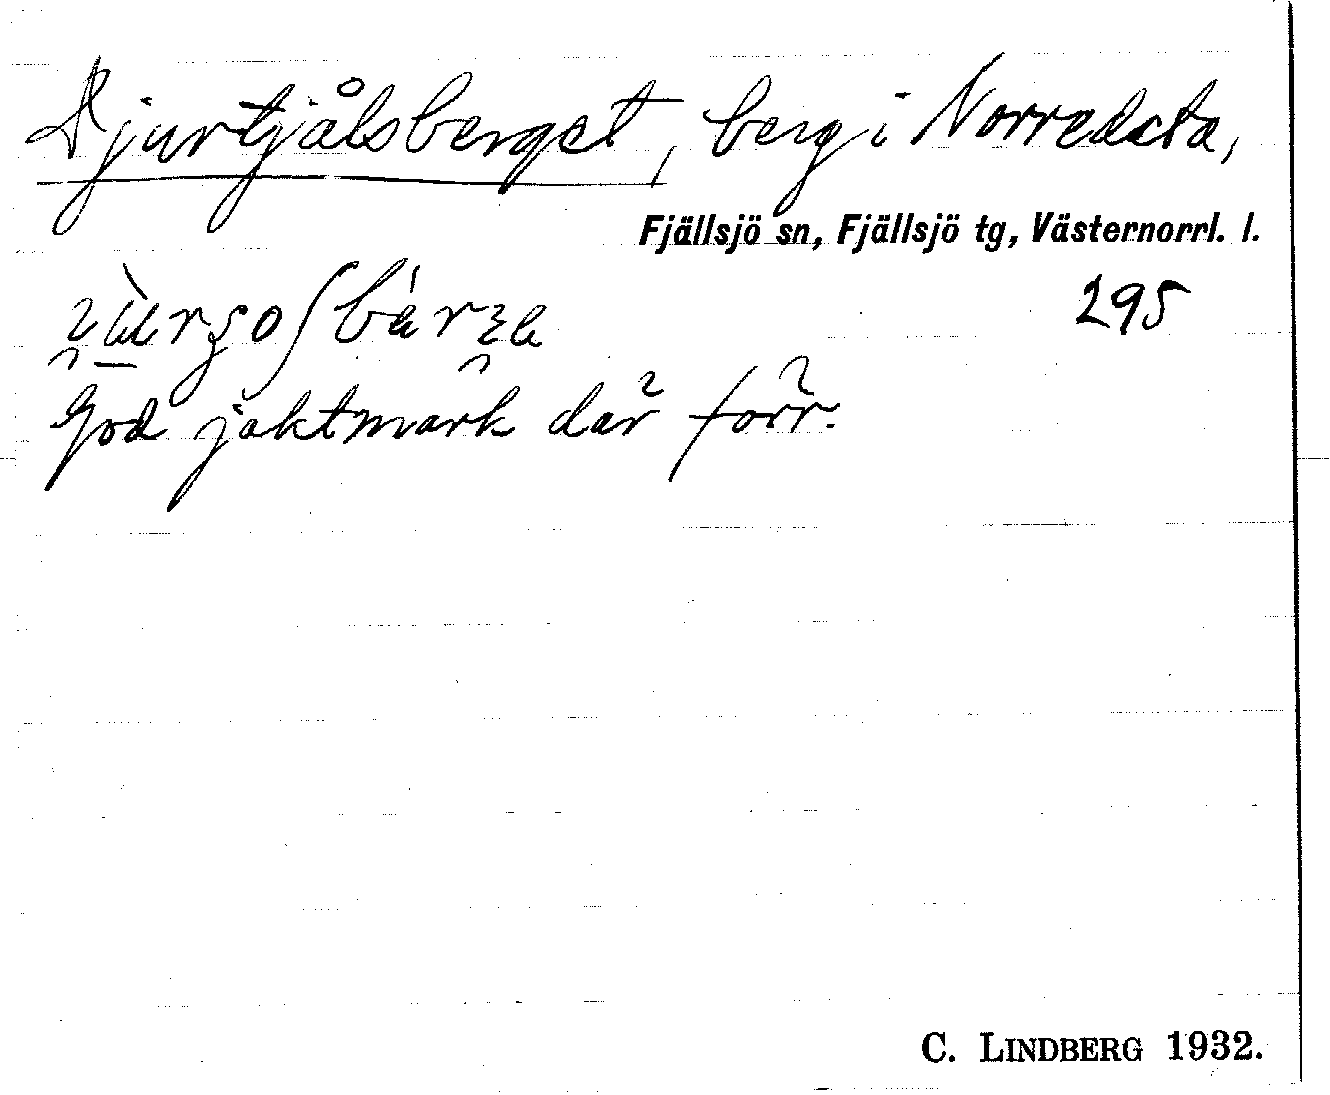 Djurtjålsberget, berg i Norredsta,
Fjällsjö sn, Fjällsjö tg, Västernorrl. l.
295
God jaktmark där förr.
C. LINDBERG 1932.